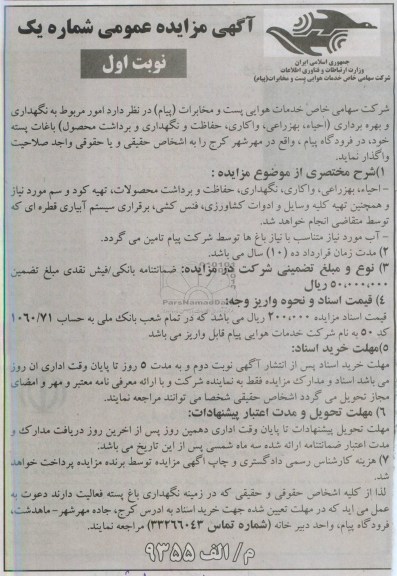 آگهی مزایده عمومی شماره یک
نوبت اول
جمهوری اسلامی ایران
وزارت ارتباطات و فناوری اطلاعات
شرکت سهامی خاص خدمات هوایی پست و مخابرات(پیام)
شرکت سهامی خاص خدمات هوایی پست و مخابرات (پیام) در نظر دارد امور مربوط به نگهداری
و بهره برداری (احیاء، بهزراعی، واکاری، حفاظت و نگهداری و برداشت محصول) باغات پسته
خود، در فرودگاه پیام ، واقع در مهرشهر کرج را به اشخاص حقیقی و یا حقوقی واجد صلاحیت
واگذار نماید.
۱)شرح مختصری از موضوع مزایده :
-احیاء، بهزراعی، واکاری، نگهداری، حفاظت و برداشت محصولات، تهیه کود و سم مورد نیاز
و همچنین تهیه کلیه وسایل و ادوات کشاورزی، فنس کشی، برقراری سیستم آبیاری قطره ای که
توسط متقاضی انجام خواهد شد.
- آب مورد نیاز متناسب با نیاز باغ ها توسط شرکت پیام تامین می گردد.
۲) مدت زمان قرارداد ده (۱۰) سال می باشد.
۳) نوع و مبلغ تضمینی شرکت در مزایده: ضمانتنامه بانکی/فیش نقدی مبلغ تضمین
۵۰,۰۰۰,۰۰۰ ریال
۴) قیمت اسناد و نحوه واریز وجه:
قیمت اسناد مزایده ۲۰۰,۰۰۰ ریال می باشد که در تمام شعب بانک ملی به حساب ۱۰۶۰/۷۱
کد ۵۰ به نام شرکت خدمات هوایی پیام قابل واریز می باشد
۵)مهلت خرید اسناد:
مهلت خرید اسناد پس از انتشار آگهی نوبت دوم و به مدت ۵ روز تا پایان وقت اداری ان روز
می باشد اسناد و مدارک مزایده فقط به نماینده شرکت و با ارائه معرفی نامه معتبر و مهر و امضای
مجاز تحویل می گردد اشخاص حقیقی شخصا می توانند مراجعه نمایند.
۶) مهلت تحویل و مدت اعتبار پیشنهادات:
مهلت تحویل پیشنهادات تا پایان وقت اداری دهمین روز پس از اخرین روز دریافت مدارک و
مدت اعتبار ضمانتنامه ارائه شده سه ماه شمسی پس از این تاریخ می باشد.
۷) هزینه کارشناس رسمی دادگستری و چاپ آگهی مزایده توسط برنده مزایده پرداخت خواهد
شد.
لذا از کلیه اشخاص حقوقی و حقیقی که در زمینه نگهداری باغ پسته فعالیت دارند دعوت به
عمل می آید که در مهلت تعیین شده جهت خرید اسناد به ادرس کرج، جاده مهرشهر-ماهدشت،
فرودگاه پیام، واحد دبیر خانه (شماره تماس ۳۳۲۶۶۰۴۳) مراجعه نمایند.
م/ الف ۹۳۵۵